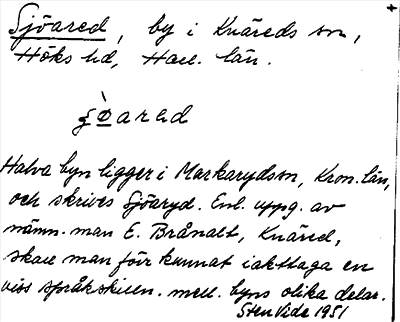 Sjöared, by i Knäreds sn,
Höks hd, Hall. län.
Halva byn ligger i Markarydssn, Kron. län,
och skrives Sjöaryd. Enl. uppg. av
nämn. man E. Brånalt, Knäred,
skall man förr kunnat iakttaga en
viss språkskilln. mell. byns olika delar.
Sten Vide 1951